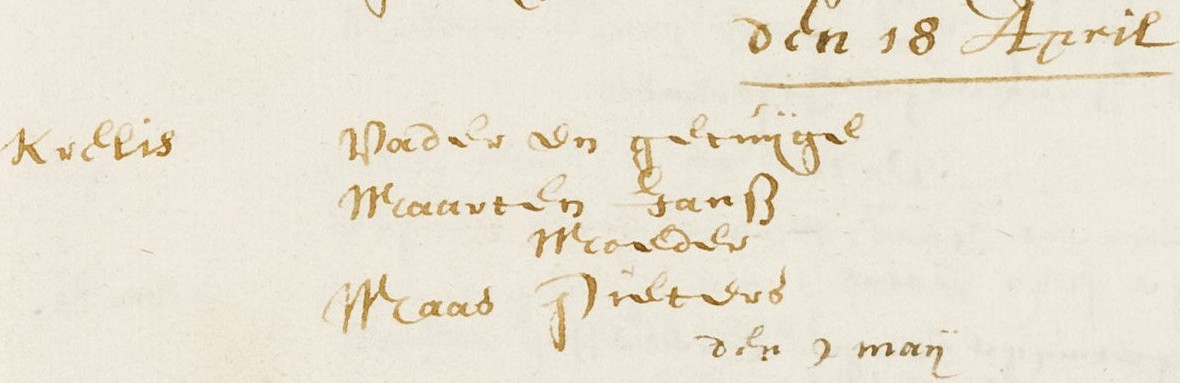 den 18 April
Krelis Vader en getuijge
Maarten Janß
Moeder
Maas Pieters
den 2 maij